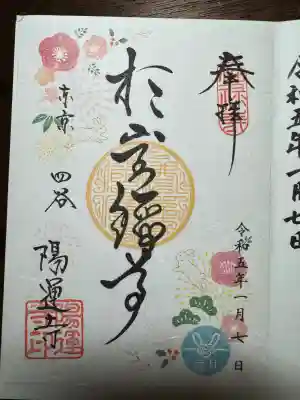 奉拝
於岩稲荷尊
東京
四谷
陽運寺
令和五年一月七日
令和五年一月七日